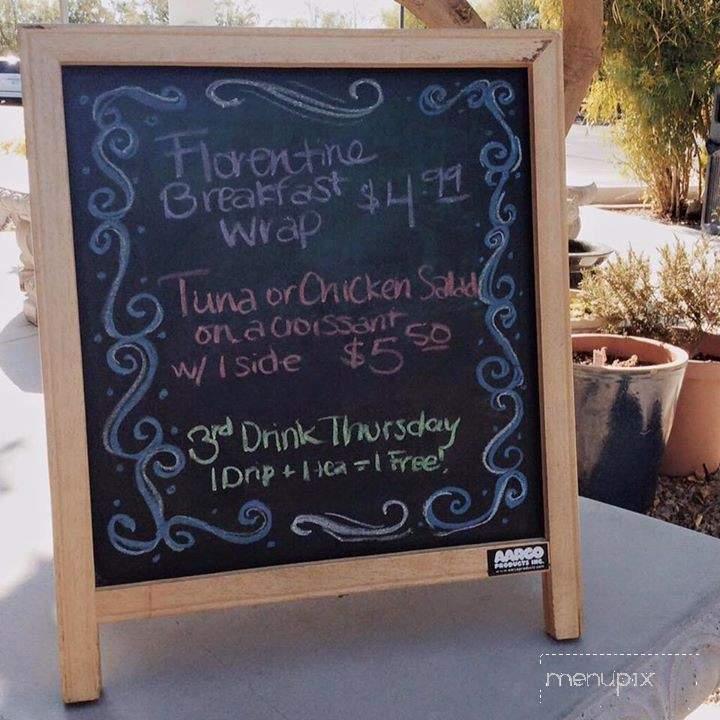 Florentine
Breakfast $4.99
Wrap
Tuna or Chicken Salad
on a croissant
w/ 1 side $5.50
3rd Drink Thursday
1 Drip + 1 Tea = 1 Free!
AARCO
PRODUCTS INC.
menupix